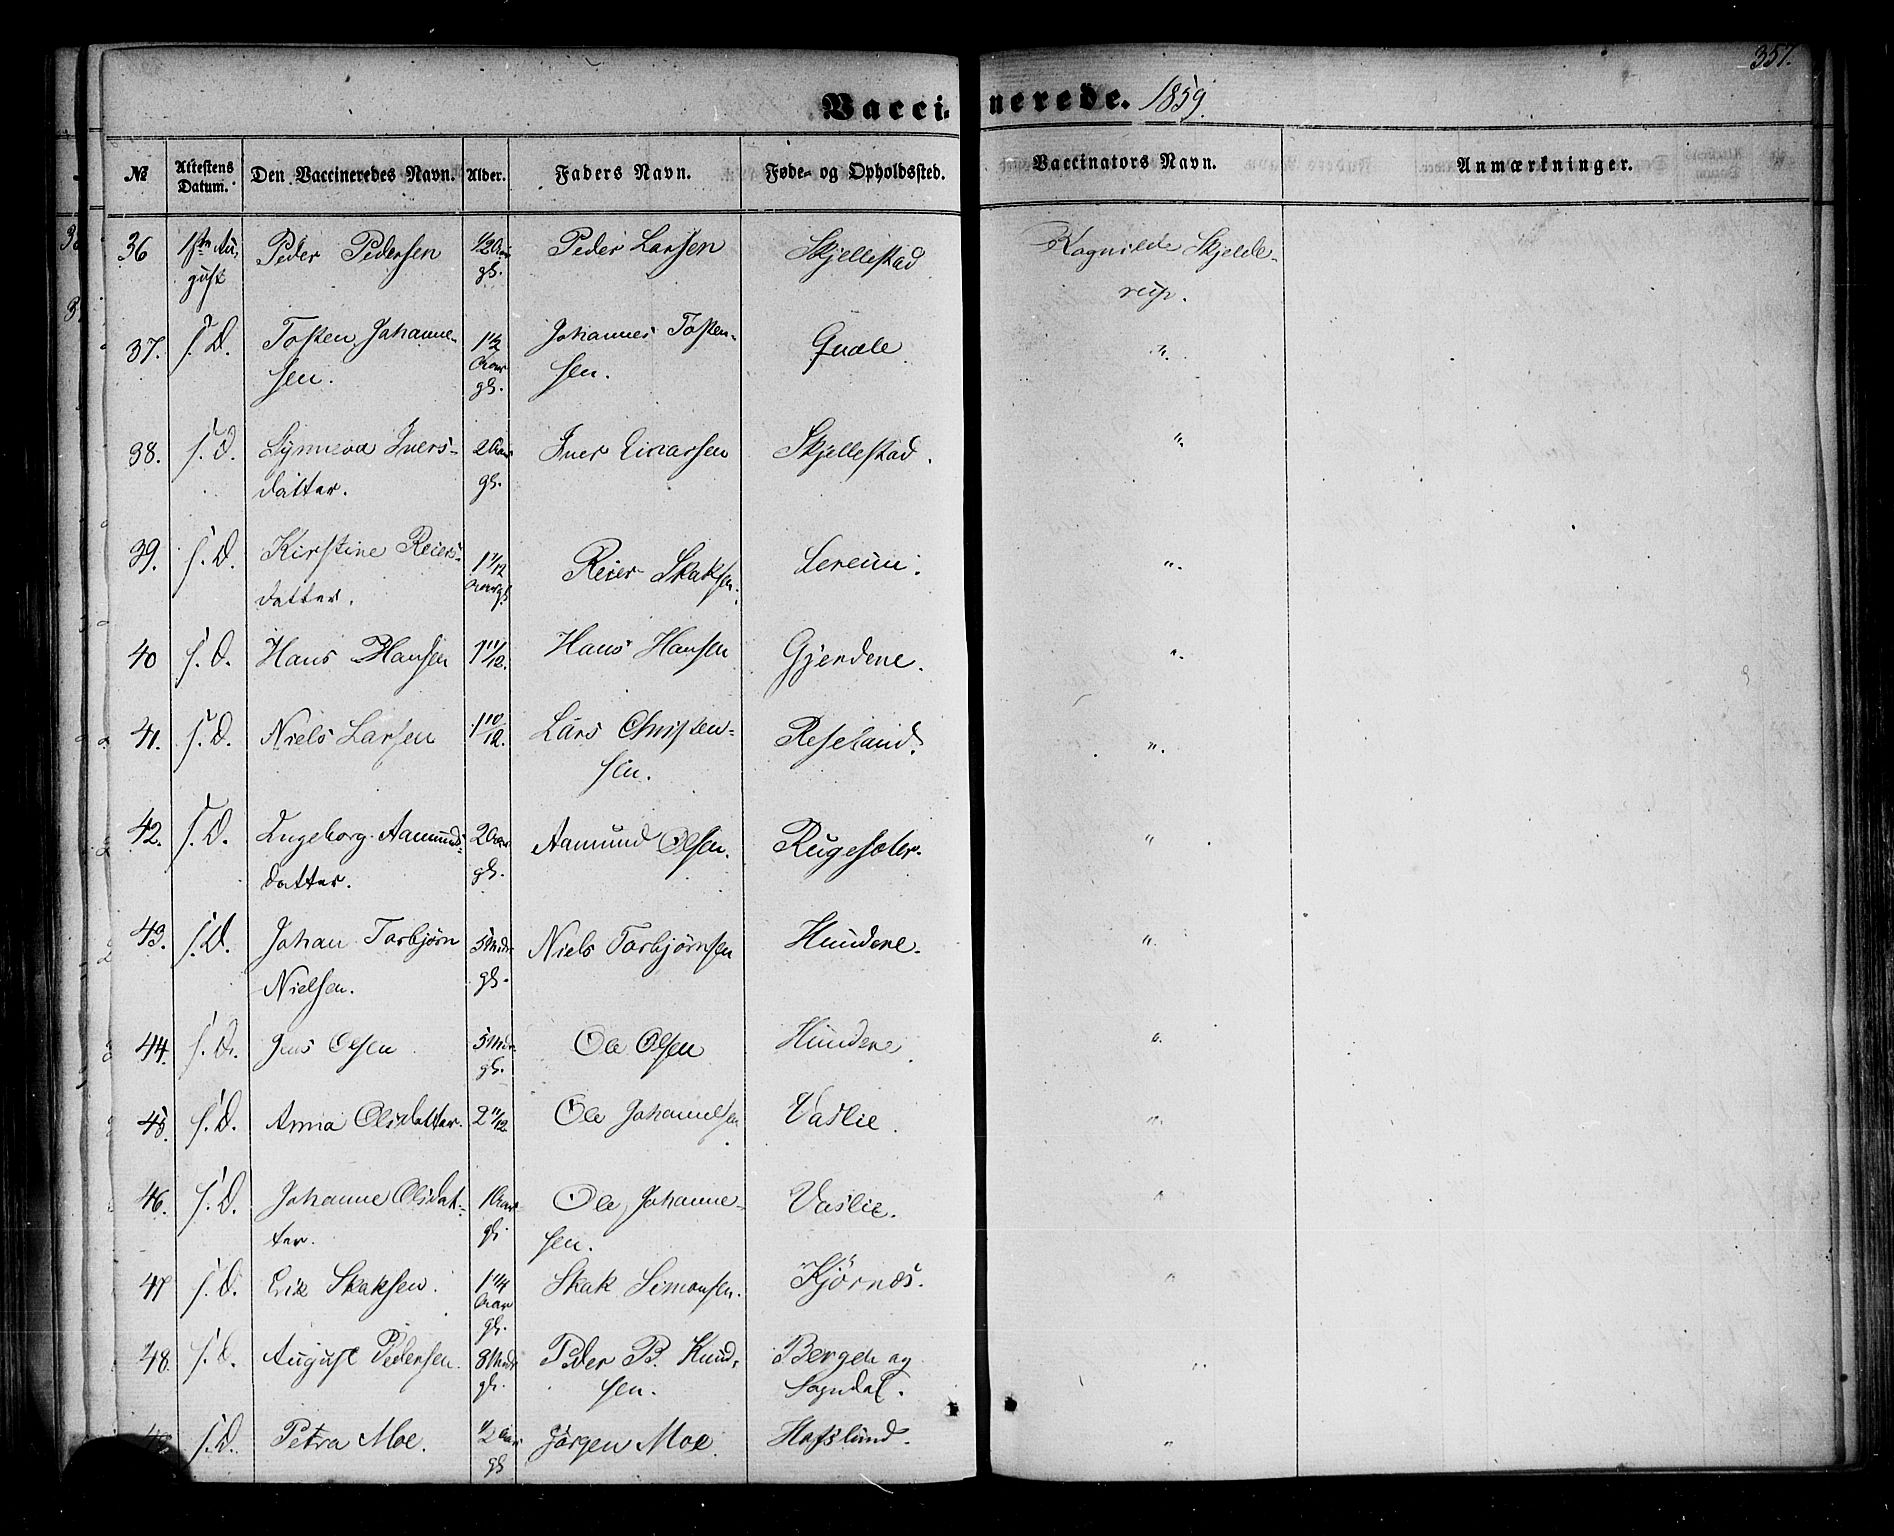 357.
Vaccinerede. 1859.
№ Attestens Datum. Den Vaccineredes Navn. Alder. Faders Navn. Føde- og Opholdssted. Vaccinators Navn. Anmærkninger.
36 1ste Au- Peder Pedersen 1/2 Aar Peder Larsen Skjellestad Ragnilde Skjelde-
gust gl. rup.
37. s. D. Tosten Johanne- 1 1/2 Johannes Tosten- Quale "
sen. Aar gl. sen.
38. s. D. Synneva Ivers- 2 Aar Iver Einarsen Skjellestad. "
datter. gl.
39. s. D. Kirstine Reiers- 1 11/12 Reier Skaksen. "
datter. Aar gl.
40 s. D. Hans Hansen 1 11/12. Hans Hansen Gjerdene. "
41. s. D. Niels Larsen 1 10/12. Lars Christen- Reseland. "
sen.
42. s. D. Ingeborg Aamunds- 2 Aar Aamund Olsen. "
datter. gl.
43. s. D. Johan Torbjørn 5 Mdr. Niels Torbjørnsen Hundere. "
Nielsen. gl.
44. s. D. Jens Olsen 5 Mdr. Ole Olsen Hundere. "
gl.
45. s. D. Anna Olsdatter. 2 11/12. Ole Johannesen Vaslie. "
46. s. D. Johanne Olsdat- 1 Aar Ole Johanne- Vaslie. "
ter. gl. sen.
47 s. D. Erik Skaksen. 1 1/4 Skak Simonsen. Kjørnes. "
Aar gl.
48. s. D. August Pedersen. 8 Mdr. Peder B. Knud- Bergen og "
gl. sen. Sogndal.
49. s. D. Petra Moe. 1/2 Aar Jørgen Moe. Hofslund. "
gl